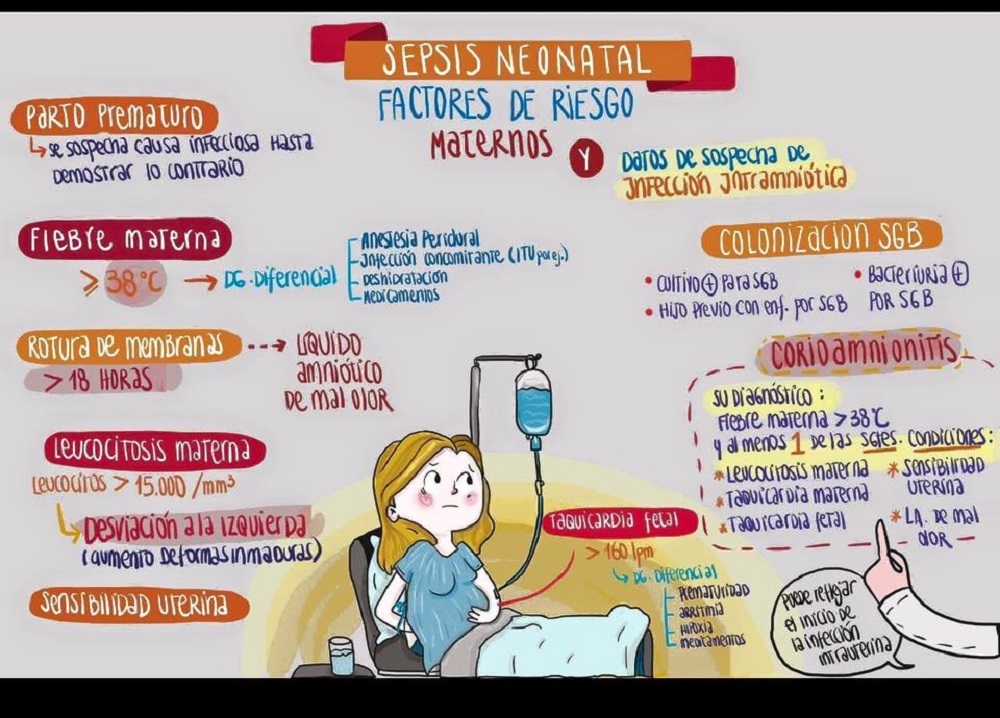 SEPSIS NEONATAL
FACTORES DE RIESGO
MATERNOS
Y
DATOS DE SOSPECHA DE
INFECCIÓN INTRAMNIÓTICA
PARTO PREMATURO
SE SOSPECHA CAUSA INFECCIOSA HASTA
DEMOSTRAR LO CONTRARIO
FIEBRE MATERNA
≥ 38°C → DG. DIFERENCIAL
ANESTESIA PERIDURAL
INFECCIÓN CONCOMITANTE (ITU por ej.)
DESHIDRATACIÓN
MEDICAMENTOS
ROTURA DE MEMBRANAS
> 18 HORAS
LÍQUIDO
AMNIÓTICO
DE MAL OLOR
LEUCOCITOSIS MATERNA
LEUCOCITOS > 15.000 /mm³
DESVIACIÓN A LA IZQUIERDA
(AUMENTO DE FORMAS INMADURAS)
SENSIBILIDAD UTERINA
TAQUICARDIA FETAL
> 160 lpm
DG. DIFERENCIAL
PREMATURIDAD
ARRITMIA
HIPOXIA
MEDICAMENTOS
COLONIZACION SGB
• CULTIVO ⊕ PARA SGB
• HIJO PREVIO CON ENF. POR SGB
• BACTERIURIA ⊕
POR SGB
CORIOAMNIONITIS
SU DIAGNÓSTICO :
FIEBRE MATERNA > 38°C
Y AL MENOS 1 DE LAS SGTES. CONDICIONES :
* LEUCOCITOSIS MATERNA
* TAQUICARDIA MATERNA
* TAQUICARDIA FETAL
* SENSIBILIDAD
UTERINA
* LA. DE MAL
OLOR
PUEDE REFLEJAR
EL INICIO DE
LA INFECCIÓN
INTRAUTERINA